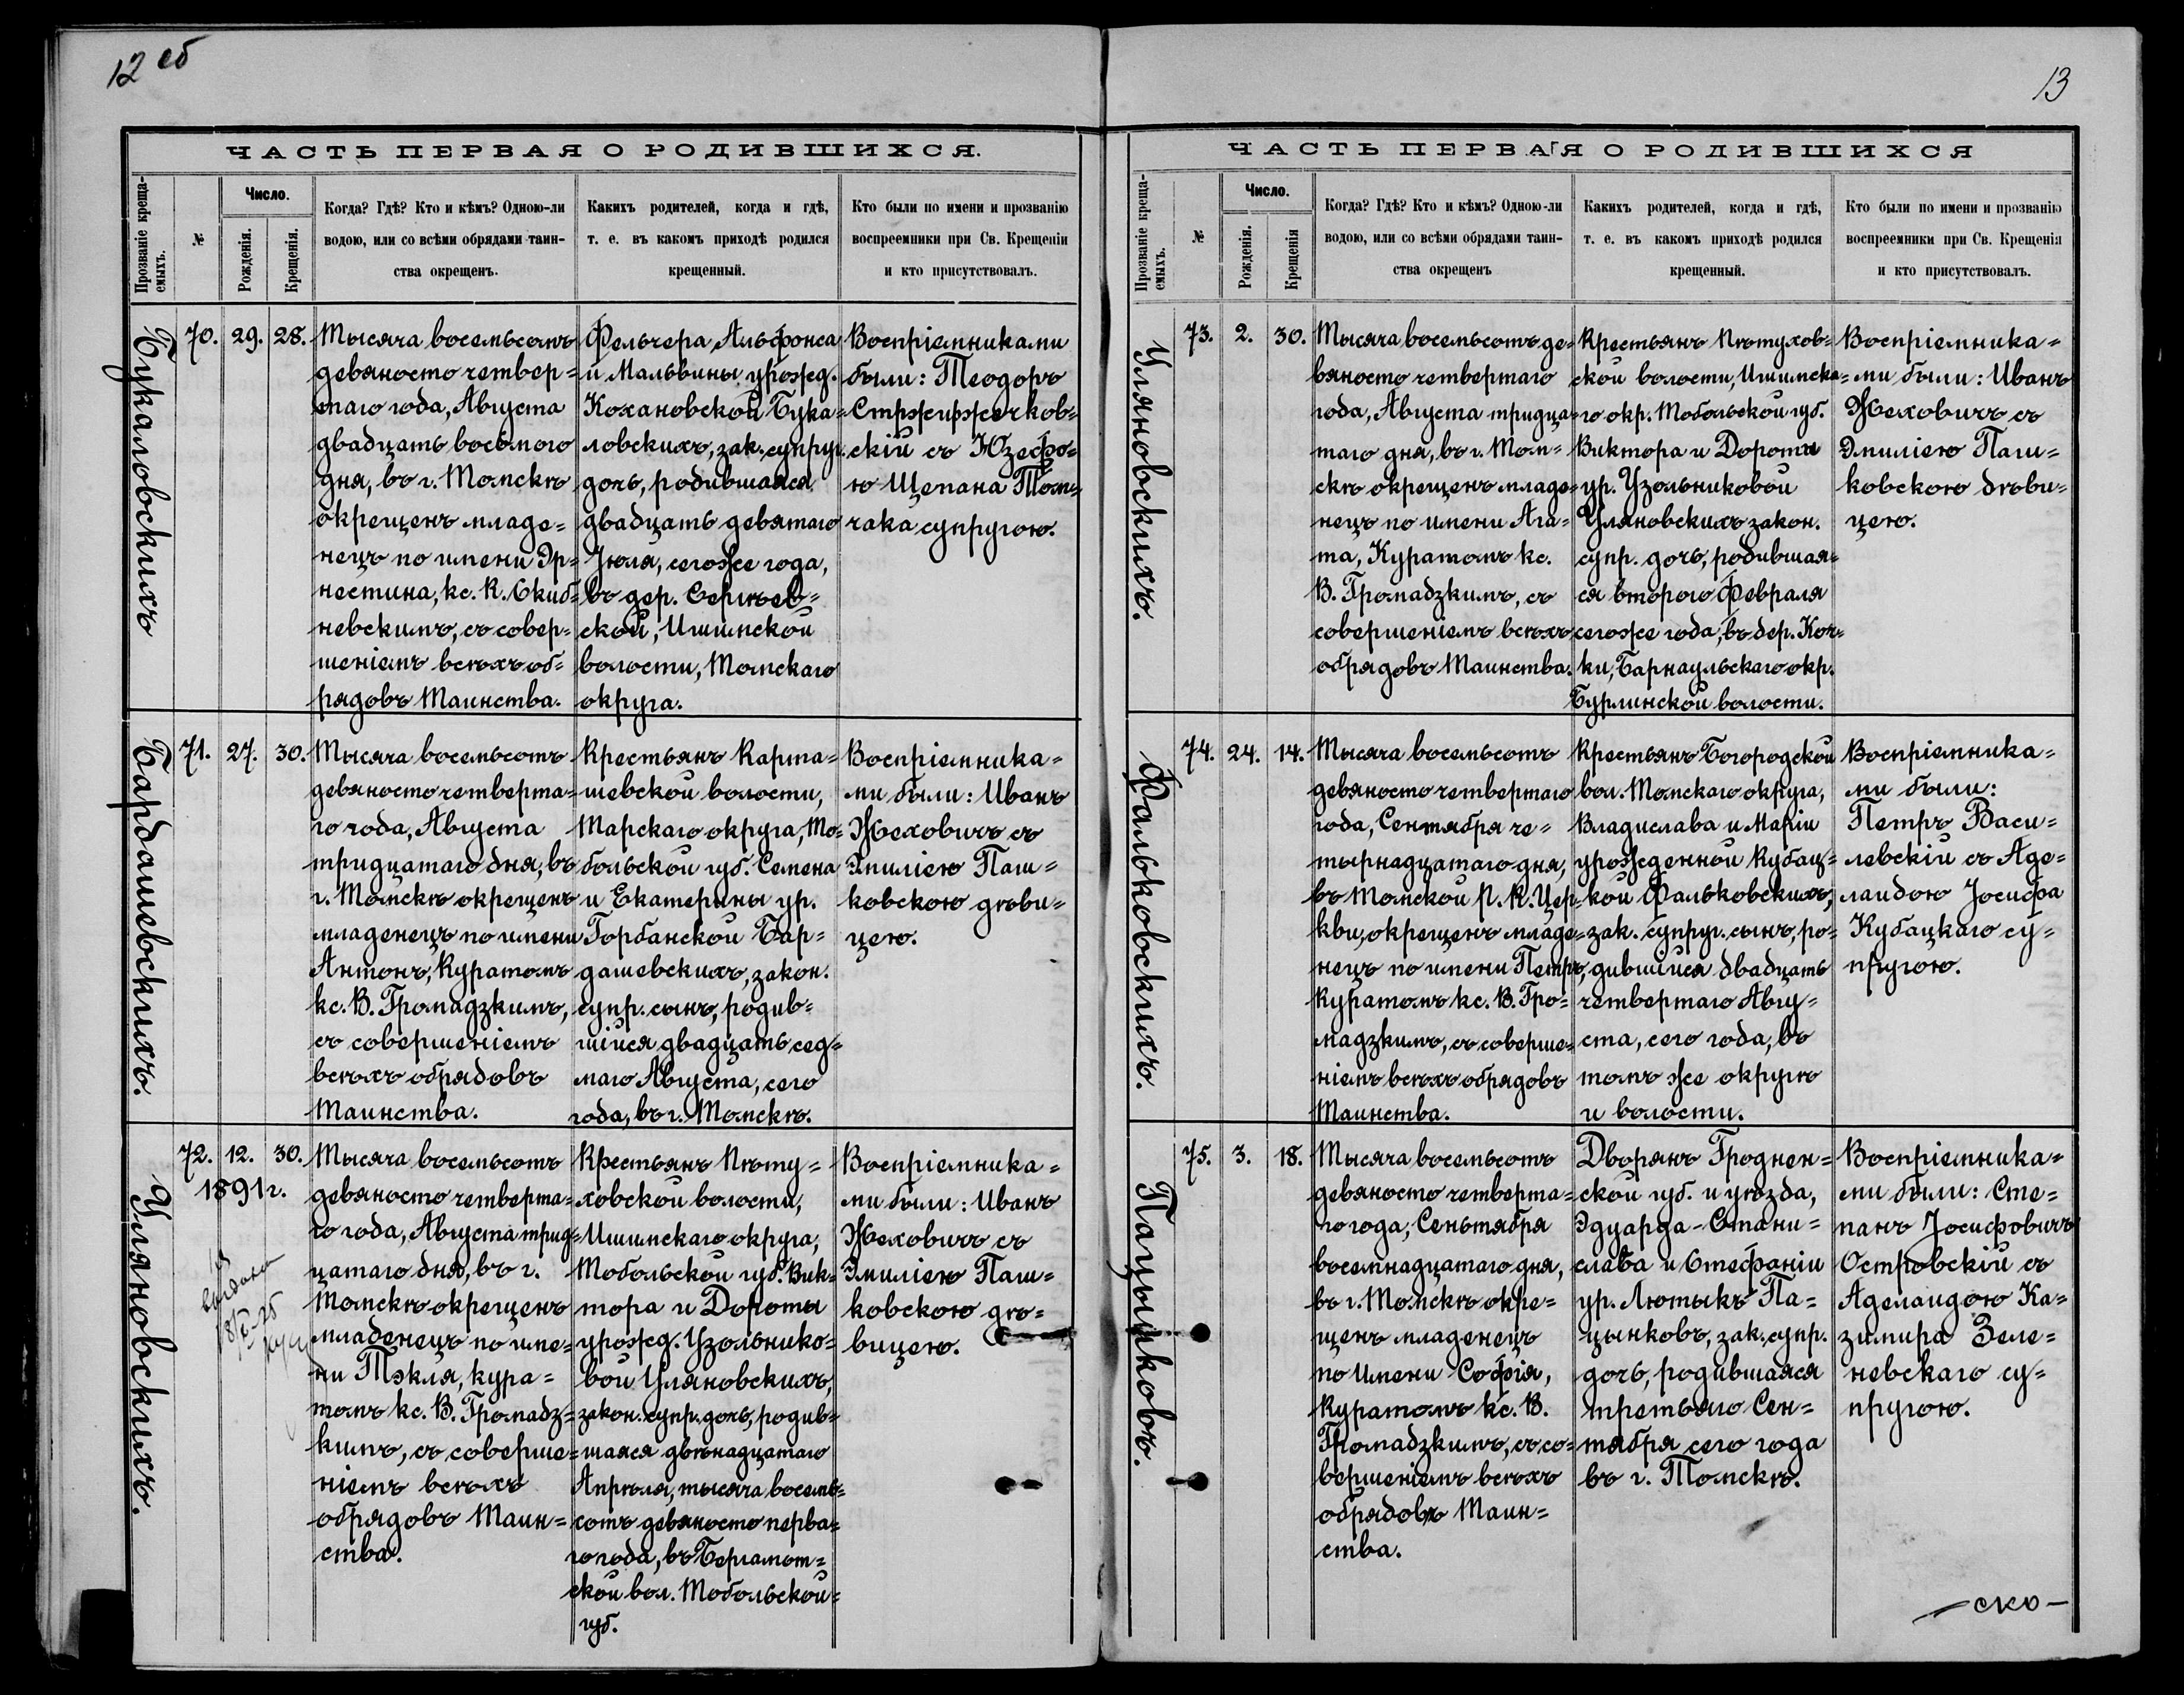 12 об
ЧАСТЬ ПЕРВАЯ О РОДИВШИХСЯ.
Прозваніе креща-
емыхъ.
№
Число.
Рожденія.
Крещенія.
Когда? Гдѣ? Кто и кѣмъ? Одною-ли
водою, или со всѣми обрядами таин-
ства окрещенъ.
Какихъ родителей, когда и гдѣ,
т. е. въ какомъ приходѣ родился
крещенный.
Кто были по имени и прозванію
воспреемники при Св. Крещеніи
и кто присутствовалъ.
Букаловскихъ
70. 29. 28.
Тысяча восемьсотъ
девяносто четвер=
таго года, Августа
двадцать восьмого
дня, въ г. Томскѣ
окрещенъ младе=
нецъ по имени Эр=
нестина, кс. К. Скиб=
невскимъ, съ совер=
шеніемъ всѣхъ об=
рядовъ Таинства.
Фельчера Альфонса
и Мальвины урожд.
Кохановской Бука=
ловскихъ, зак. супруг.
дочь, родившаяся
двадцать девятаго
Іюля, сегоже года,
въ дер. Сергѣев=
ской, Ишимской
волости, Томскаго
округа.
Воспріемниками
были: Теодоръ
Стржижечков=
скій съ Юзефо=
ю Щепана Том=
чака супругою.
Бардашевскихъ.
71. 27. 30.
Тысяча восемьсотъ
девяносто четверта=
го года, Августа
тридцатаго дня, въ
г. Томскѣ окрещенъ
младенецъ по имени
Антонъ, Куратомъ
кс. В. Громадзкимъ,
съ совершеніемъ
всѣхъ обрядовъ
Таинства.
Крестьянъ Карта=
шевской волости,
Тарскаго округа, То=
больской губ. Семена
и Екатерины ур.
Горбанской Бар=
дашевскихъ, закон.
супр. сынъ, родив=
шійся двадцать сед=
маго Августа, сего
года, въ г. Томскѣ.
Воспріемника=
ми были: Иванъ
Жеховичъ съ
Эмиліею Паш=
ковскою дѣви=
цею.
Уляновскихъ.
72. 12. 30.
1891 г.
Тысяча восемьсотъ
девяносто четверта=
го года, Августа трид=
цатаго дня, въ г.
Томскѣ окрещенъ
младенецъ по име=
ни Тэкля, кура=
томъ кс. В. Громадз=
кимъ, съ соверше=
ніемъ всѣхъ
обрядовъ Таин=
ства.
Крестьянъ Пѣту=
ховской волости,
Ишимскаго округа,
Тобольской губ. Вик=
тора и Дороты
урожд. Узольнико=
вой Уляновскихъ,
закон. супр. дочь, родив=
шаяся двѣнадцатаго
Апрѣля, тысяча восемь=
сотъ девяносто перва=
го года, въ Бергамот=
ской вол. Тобольской
губ.
Воспріемника=
ми были: Иванъ
Жеховичъ съ
Эмиліею Паш=
ковскою дѣ=
вицею.
13
ЧАСТЬ ПЕРВАЯ О РОДИВШИХСЯ
Прозваніе креща-
емыхъ.
№
Число.
Рожденія.
Крещенія
Когда? Гдѣ? Кто и кѣмъ? Одною-ли
водою, или со всѣми обрядами таин-
ства окрещенъ
Какихъ родителей, когда и гдѣ,
т. е. въ какомъ приходѣ родился
крещенный.
Кто были по имени и прозванію
воспреемники при Св. Крещеніи
и кто присутствовалъ.
Уляновскихъ.
73. 2. 30.
Тысяча восемьсотъ де=
вяносто четвертаго
года, Августа тридца=
таго дня, въ г. Том=
скѣ окрещенъ младе=
нецъ по имени Ага=
та, Куратомъ кс.
В. Громадзкимъ, съ
совершеніемъ всѣхъ
обрядовъ Таинства.
Крестьянъ Пѣтухов=
ской волости, Ишимска=
го окр. Тобольской губ.
Виктора и Дороты
ур. Узольниковой
Уляновскихъ закон.
супр. дочь, родившая=
ся второго Февраля
сегоже года, въ дер. Коч=
ки, Барнаульскаго окр.
Бурлинской волости.
Воспріемника=
ми были: Иванъ
Жеховичъ съ
Эмиліею Паш=
ковскою дѣви=
цею.
Фальковскихъ.
74. 24. 14.
Тысяча восемьсотъ
девяносто четвертаго
года, Сентября че=
тырнадцатаго дня,
въ Томской Р. К. Цер=
кви, окрещенъ младе=
нецъ по имени Петръ,
Куратомъ кс. В. Гро=
мадзкимъ, съ соверше=
ніемъ всѣхъ обрядовъ
Таинства.
Крестьянъ Богородской
вол. Томскаго округа,
Владислава и Маріи
урожденной Кубац=
кой Фальковскихъ,
зак. супруг. сынъ, ро=
дившійся двадцать
четвертаго Авгу=
ста, сего года, въ
томъ же округѣ
и волости.
Воспріемника=
ми были:
Петръ Васи=
левскій съ Аде=
лаидою Іосифа
Кубацкаго су=
пругою.
Пацынковъ.
75. 3. 18.
Тысяча восемьсотъ
девяносто четверта=
го года, Сеньтября
восемнадцатаго дня,
въ г. Томскѣ окре=
щенъ младенецъ
по имени Софія,
Куратомъ кс. В.
Громадзкимъ, съ со=
вершеніемъ всѣхъ
обрядовъ Таин=
ства.
Дворянъ Гроднен=
ской губ. и уѣзда,
Эдуарда-Стани=
слава и Стефаніи
ур. Лютыкъ Па=
цынковъ, зак. супр.
дочь, родившаяся
третьяго Сен=
тября сего года
въ г. Томскѣ.
Воспріемника=
ми были: Сте=
панъ Іосифовичъ
Островскій съ
Аделаидою Ка=
зимира Зеле=
невскаго су=
пругою.
—ско—